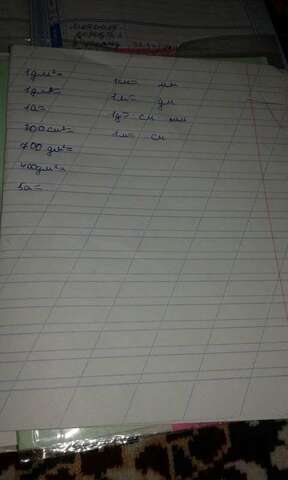 1дм²=
1дм²=
1а=
300см²=
700 дм²=
400дм²=
5а=
1см= мм
1м= дм
1д= см мм
1м= см